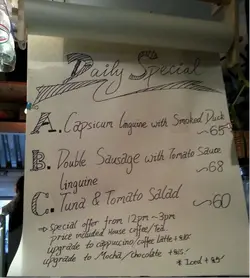 Daily Special
A. Capsicum Linguine with Smoked Duck
~65
B. Double Sausage with Tomato Sauce
Linguine ~68
C. Tuna & Tomato Salad ~60
→ Special offer from 12pm ~ 3pm
price included House coffee/Tea
upgrade to cappucino/coffee Latte
upgrade to Mocha/chocolate
* Iced